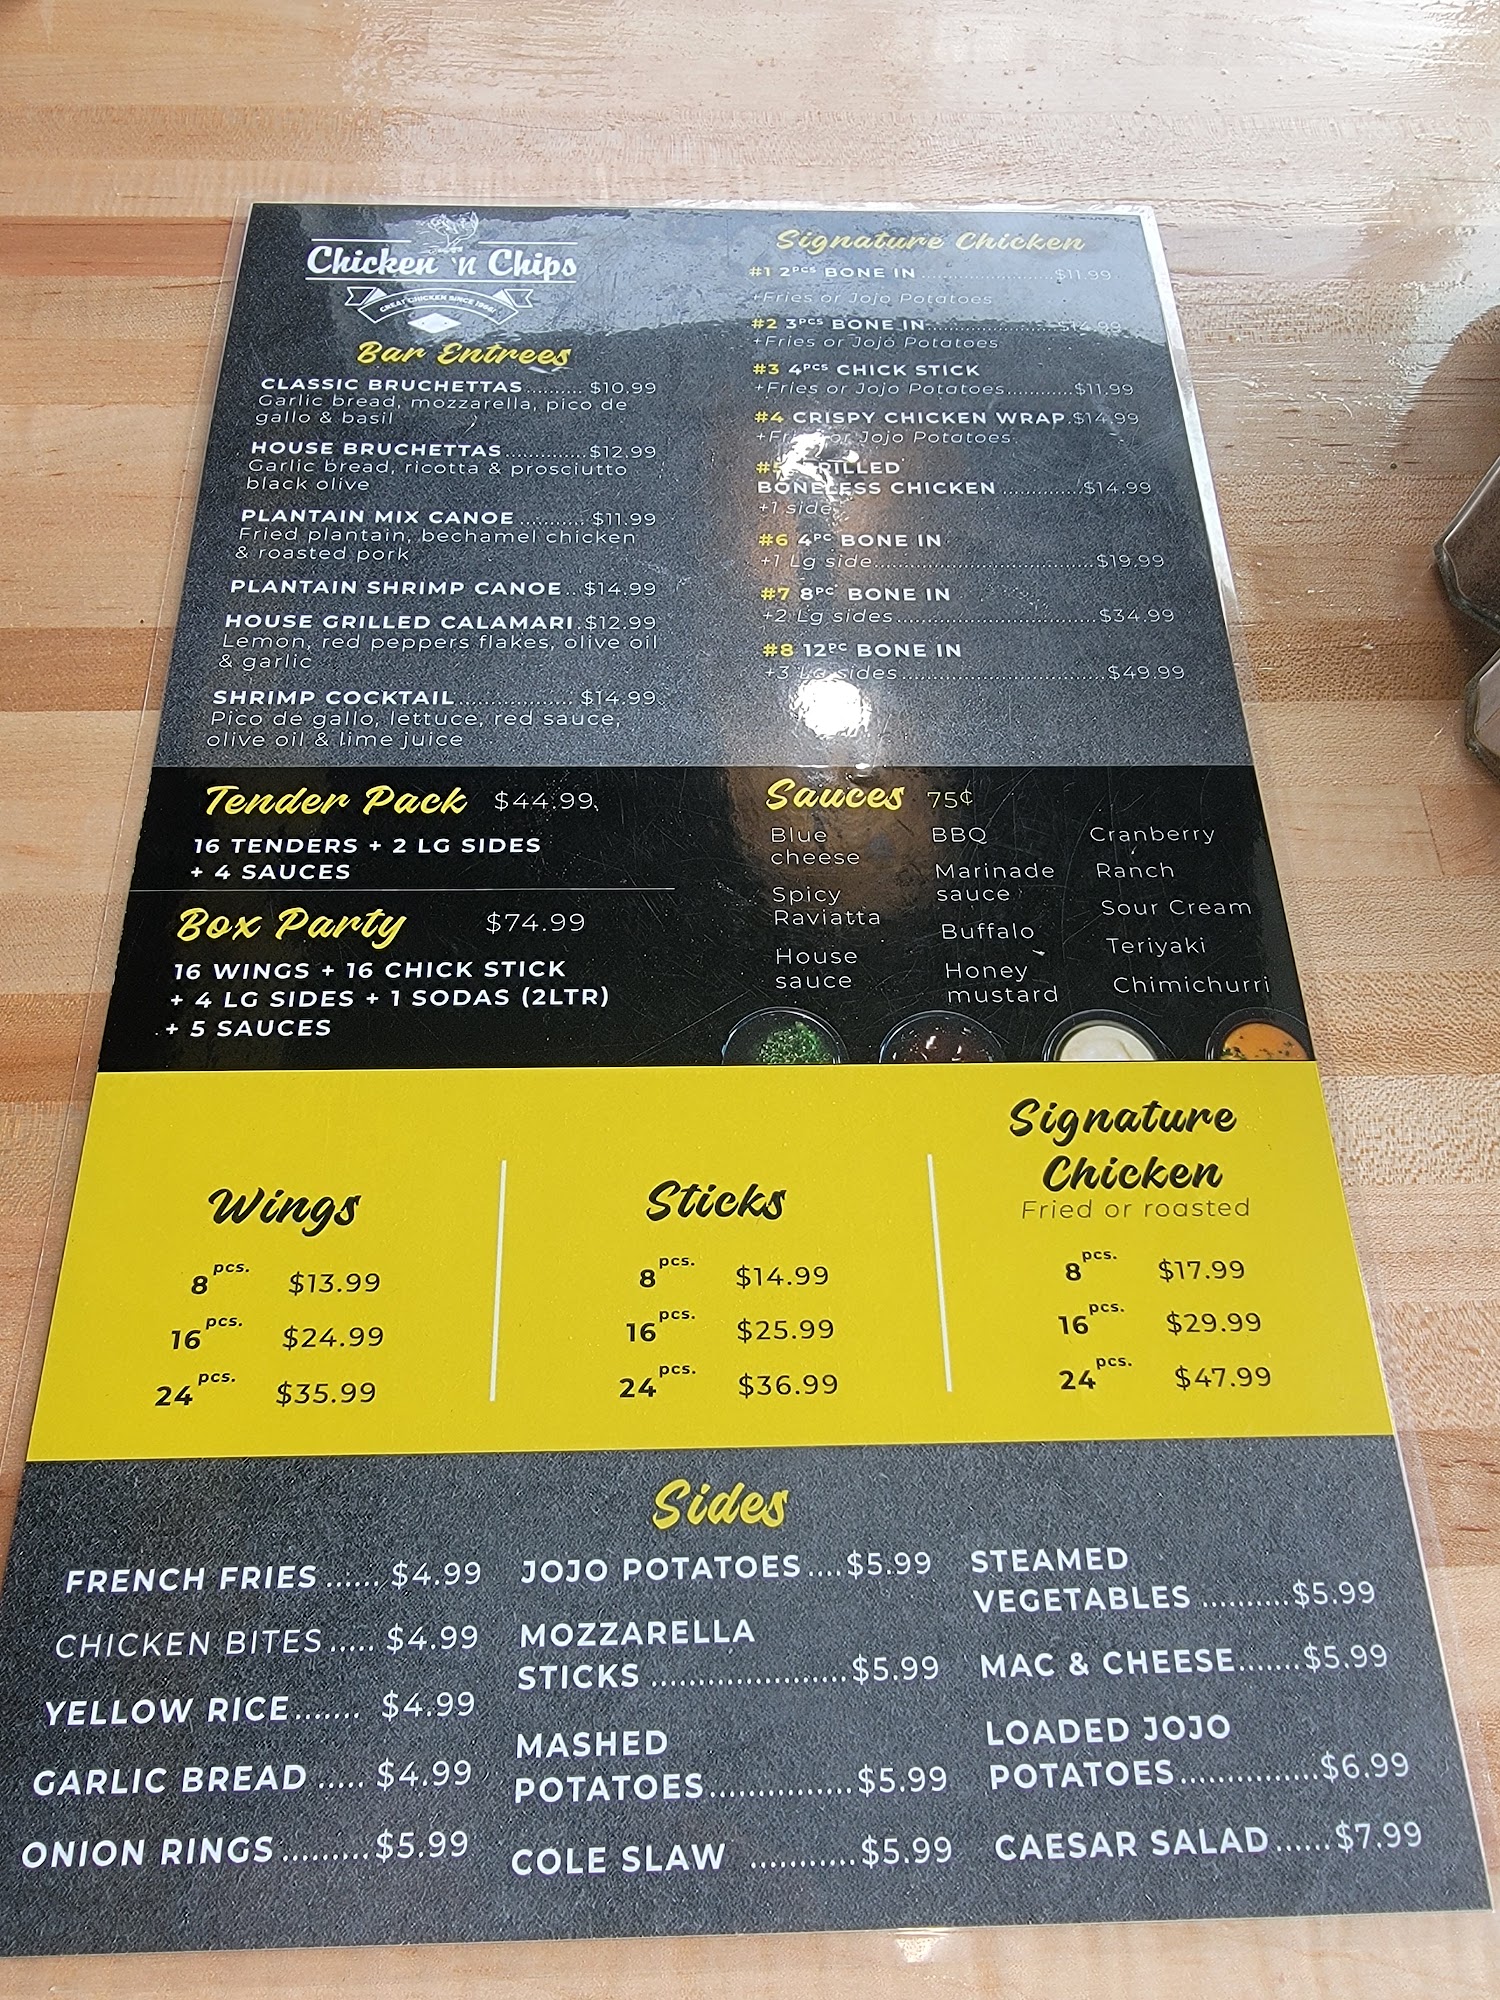 Chicken 'n Chips
GREAT CHICKEN SINCE
Bar Entrees
CLASSIC BRUCHETTAS.......... $10.99
Garlic bread, mozzarella, pico de
gallo & basil
HOUSE BRUCHETTAS..............$12.99
Garlic bread, ricotta & prosciutto
black olive
PLANTAIN MIX CANOE ........... $11.99
Fried plantain, bechamel chicken
& roasted pork
PLANTAIN SHRIMP CANOE .. $14.99
HOUSE GRILLED CALAMARI.$12.99
Lemon, red peppers flakes, olive oil
& garlic
SHRIMP COCKTAIL................... $14.99
Pico de gallo, lettuce, red sauce,
olive oil & lime juice
Signature Chicken
#1 2PCS BONE IN ......................$11.99
+Fries or Jojo Potatoes
#2 3PCS BONE IN......................$14.99
+Fries or Jojo Potatoes
#3 4PCS CHICK STICK
+Fries or Jojo Potatoes............$11.99
#4 CRISPY CHICKEN WRAP.$14.99
+Fries or Jojo Potatoes
#5 GRILLED
BONELESS CHICKEN ..............$14.99
+1 side
#6 4PC BONE IN
+1 Lg side......................................$19.99
#7 8PC BONE IN
+2 Lg sides...................................$34.99
#8 12PC BONE IN
+3 Lg sides...................................$49.99
Tender Pack $44.99
16 TENDERS + 2 LG SIDES
+ 4 SAUCES
Box Party $74.99
16 WINGS + 16 CHICK STICK
+ 4 LG SIDES + 1 SODAS (2LTR)
+ 5 SAUCES
Sauces 75¢
Blue
cheese
Spicy
Raviatta
House
sauce
BBQ
Marinade
sauce
Buffalo
Honey
mustard
Cranberry
Ranch
Sour Cream
Teriyaki
Chimichurri
Wings
8 pcs. $13.99
16 pcs. $24.99
24 pcs. $35.99
Sticks
8 pcs. $14.99
16 pcs. $25.99
24 pcs. $36.99
Signature
Chicken
Fried or roasted
8 pcs. $17.99
16 pcs. $29.99
24 pcs. $47.99
Sides
FRENCH FRIES ...... $4.99
CHICKEN BITES ..... $4.99
YELLOW RICE....... $4.99
GARLIC BREAD ..... $4.99
ONION RINGS.........$5.99
JOJO POTATOES ....$5.99
MOZZARELLA
STICKS .....................$5.99
MASHED
POTATOES...............$5.99
COLE SLAW ...........$5.99
STEAMED
VEGETABLES ..........$5.99
MAC & CHEESE.......$5.99
LOADED JOJO
POTATOES...............$6.99
CAESAR SALAD......$7.99